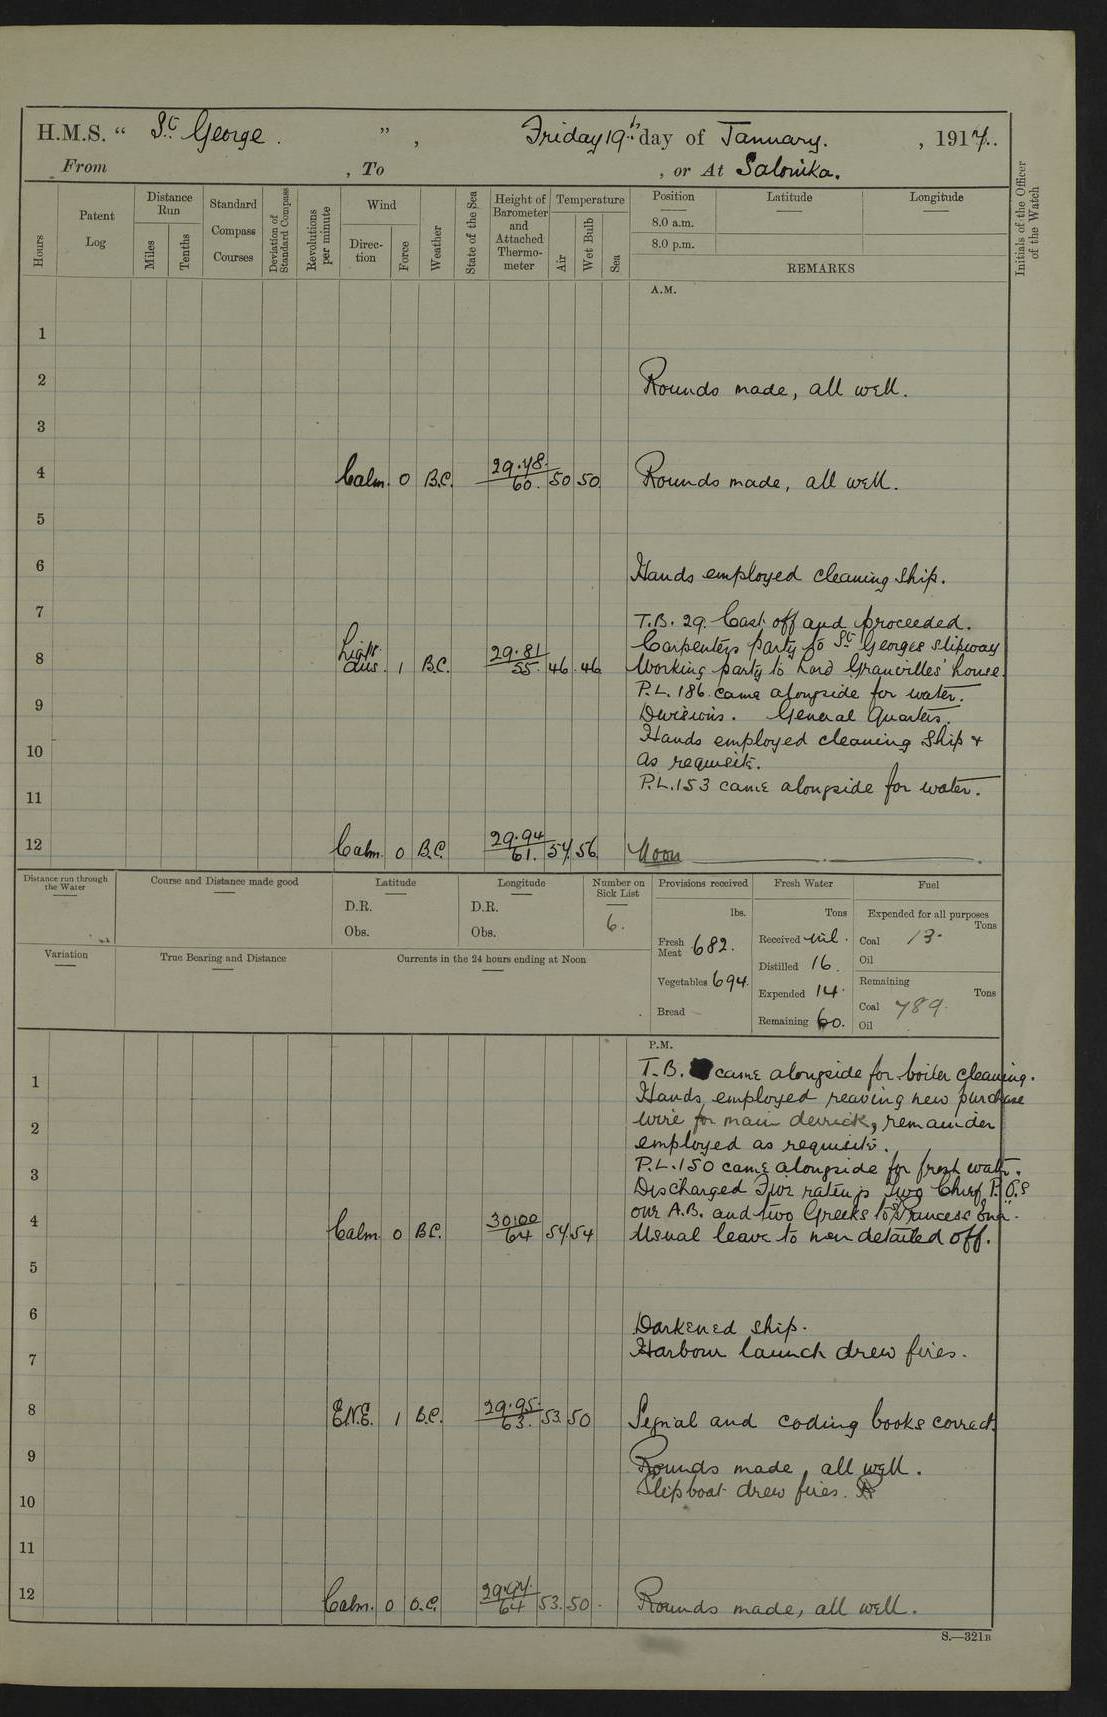 H.M.S. “ St George. ” , Friday 19th day of January. , 1917.
From , To , or At Salonika.
Hours
Patent Log
Distance Run
Miles
Tenths
Standard Compass Courses
Deviation of Standard Compass
Revolutions per minute
Wind
Direc-tion
Force
Weather
State of the Sea
Height of Barometer and Attached Thermo-meter
Temperature
Air
Wet Bulb
Sea
Position
8.0 a.m.
8.0 p.m.
Latitude
Longitude
REMARKS
Initials of the Officer of the Watch
A.M.
1
2 Rounds made, all well.
3
4 Calm. 0 B.C. 29.48. 60. 50 50 Rounds made, all well.
5
6 Hands employed cleaning ship.
7 T.B. 29. Cast off and proceeded.
Carpenters party to St Georges slipway
8 Light airs. 1 B.C. 29.81 55. 46. 46 Working party to Lord Granvilles' house.
P.L. 186 came alongside for water.
9 Divisions. General Quarters.
Hands employed cleaning ship &
10 as requisite.
P.L. 153 came alongside for water.
11
12 Calm. 0 B.C. 29.94 61. 57. 56 Noon
Distance run through the Water
Course and Distance made good
Latitude
D.R.
Obs.
Longitude
D.R.
Obs.
Number on Sick List
6.
Provisions received
lbs.
Fresh Meat 682.
Vegetables 694.
Bread
Fresh Water
Tons
Received nil.
Distilled 16.
Expended 14.
Remaining 60.
Fuel
Expended for all purposes
Tons
Coal 13.
Oil
Remaining
Tons
Coal 789.
Oil
Variation
True Bearing and Distance
Currents in the 24 hours ending at Noon
P.M.
1 T.B. came alongside for boiler cleaning.
Hands employed reaving new purchase
2 wire for main derrick, remainder
employed as requisite.
3 P.L. 150 came alongside for fresh water.
Discharged Five ratings Two Chief P.O.s
4 one A.B. and two Greeks to "Princess Ena".
Calm 0 B.C. 30.00 64 57. 54 Usual leave to men detailed off.
5
6 Darkened ship.
7 Harbour launch drew fires.
8 E.N.E. 1 B.C. 29.95. 63. 53. 50 Signal and coding books correct.
9 Rounds made, all well.
10 Slipboat drew fires.
11
12 Calm. 0 O.C. 64 53. 50. Rounds made, all well.
S.—321B